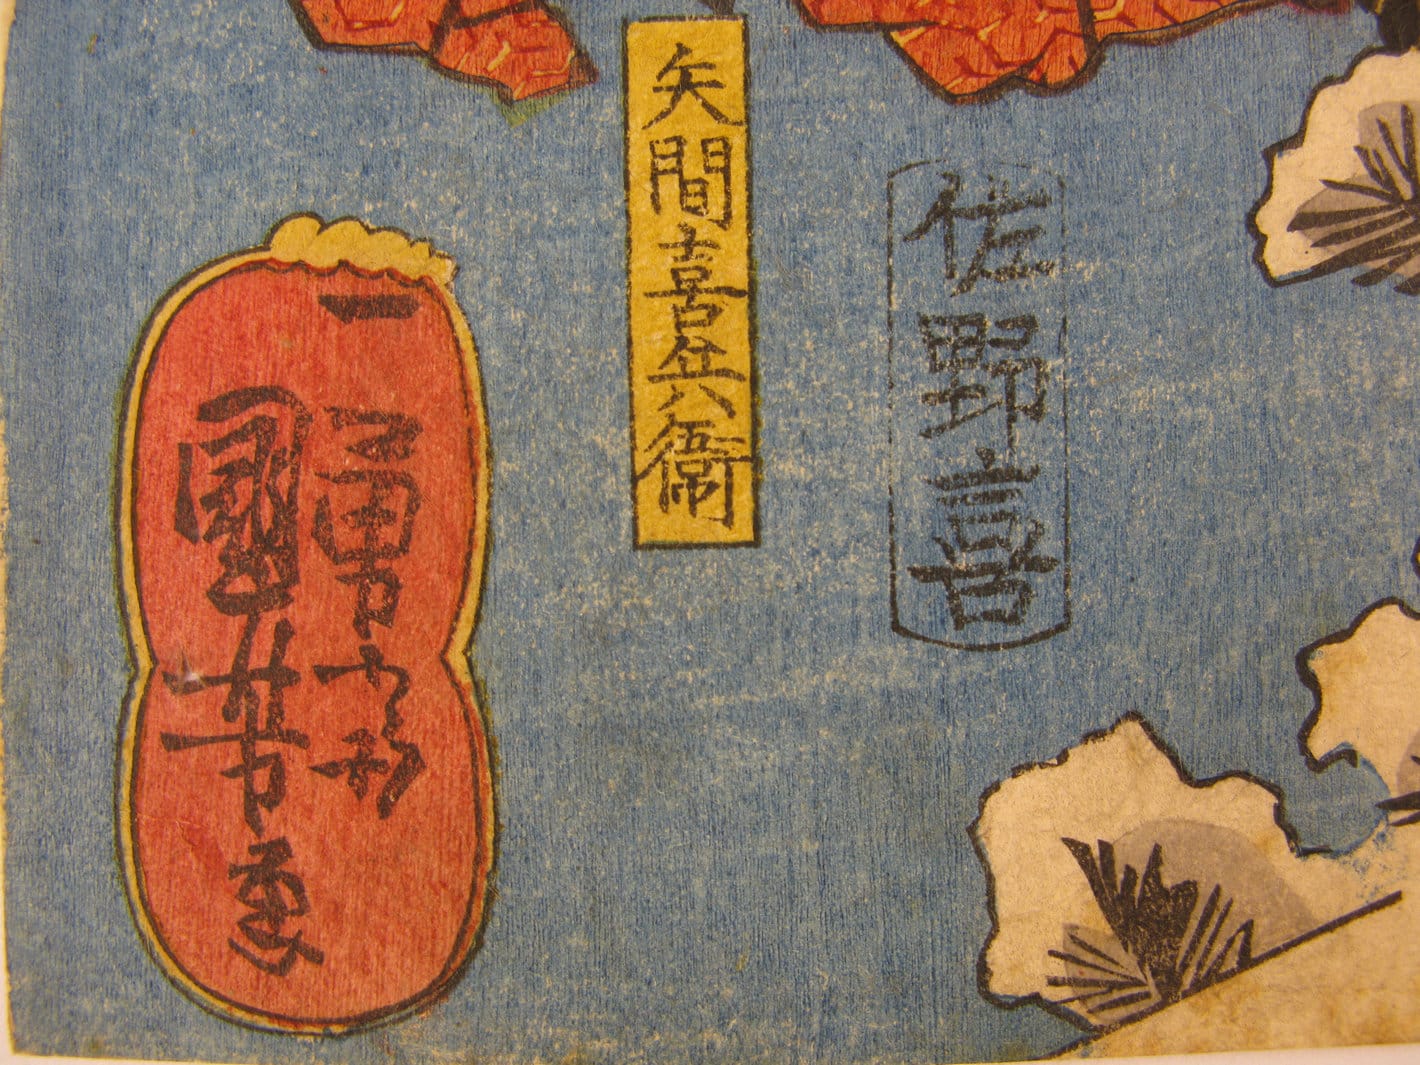 佐野喜
矢間喜兵衛
一勇斎
國芳画